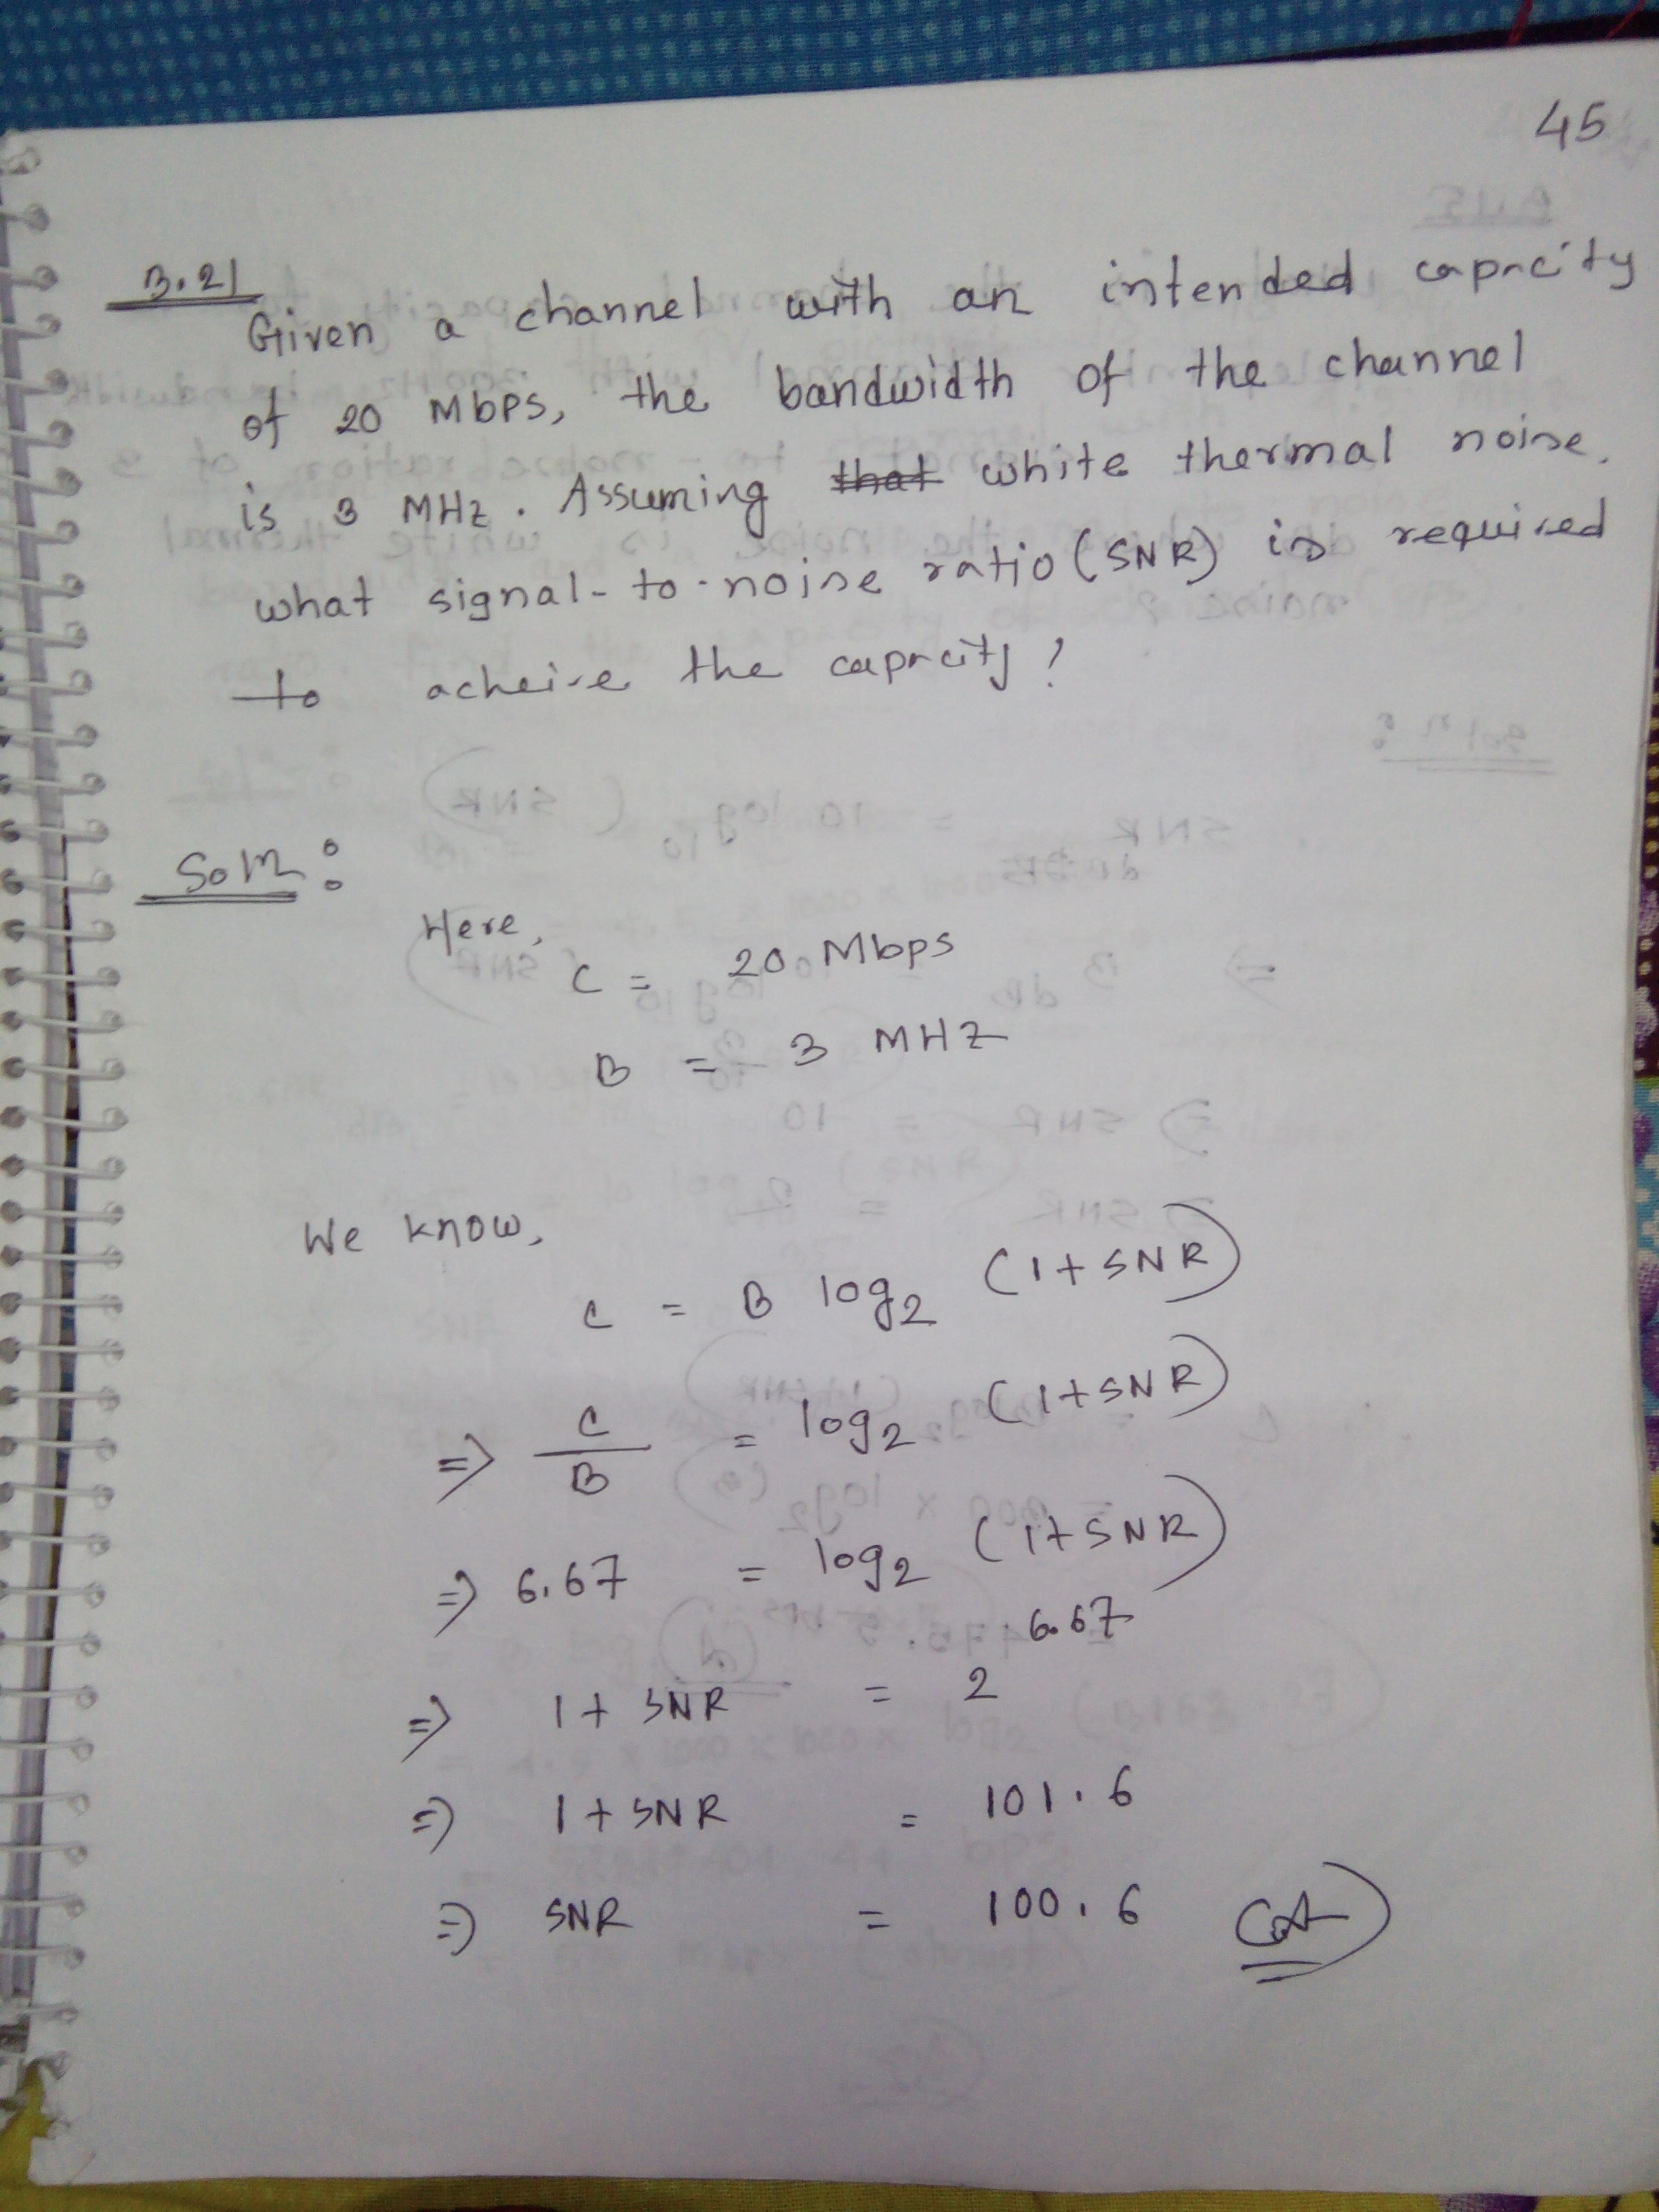 45
3.21
Given a channel with an intended capacity
of 20 Mbps, the bandwidth of the channel
is 3 MHz. Assuming that white thermal noise,
what signal-to-noise ratio (SNR) is required
to acheive the capacity?
Soln:
Here,
C = 20 Mbps
B = 3 MHZ
We know,
C = B log2 (1+SNR)
=> C/B = log2 (1+SNR)
=> 6.67 = log2 (1+SNR)
=> 1+ SNR = 2^6.67
=> 1+SNR = 101.6
=> SNR = 100.6